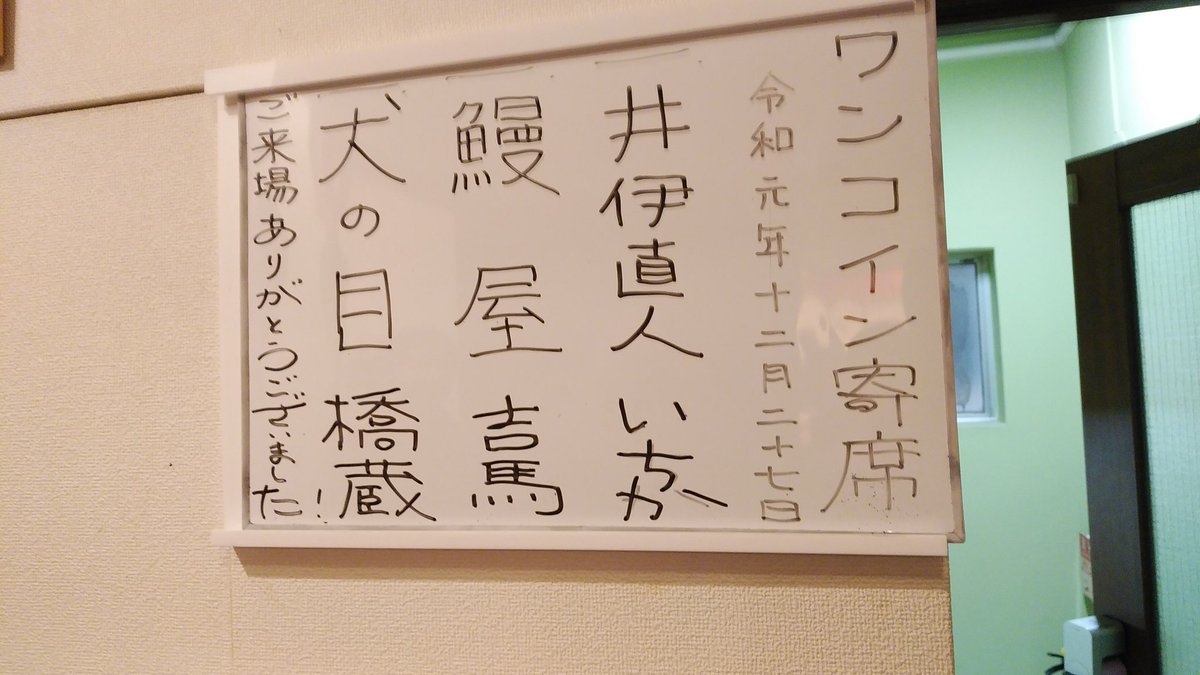 ワンコイン寄席
令和元年十二月二十七日
井伊直人 いちか
鰻屋 吉馬
犬の目 橋蔵
ご来場ありがとうございました!